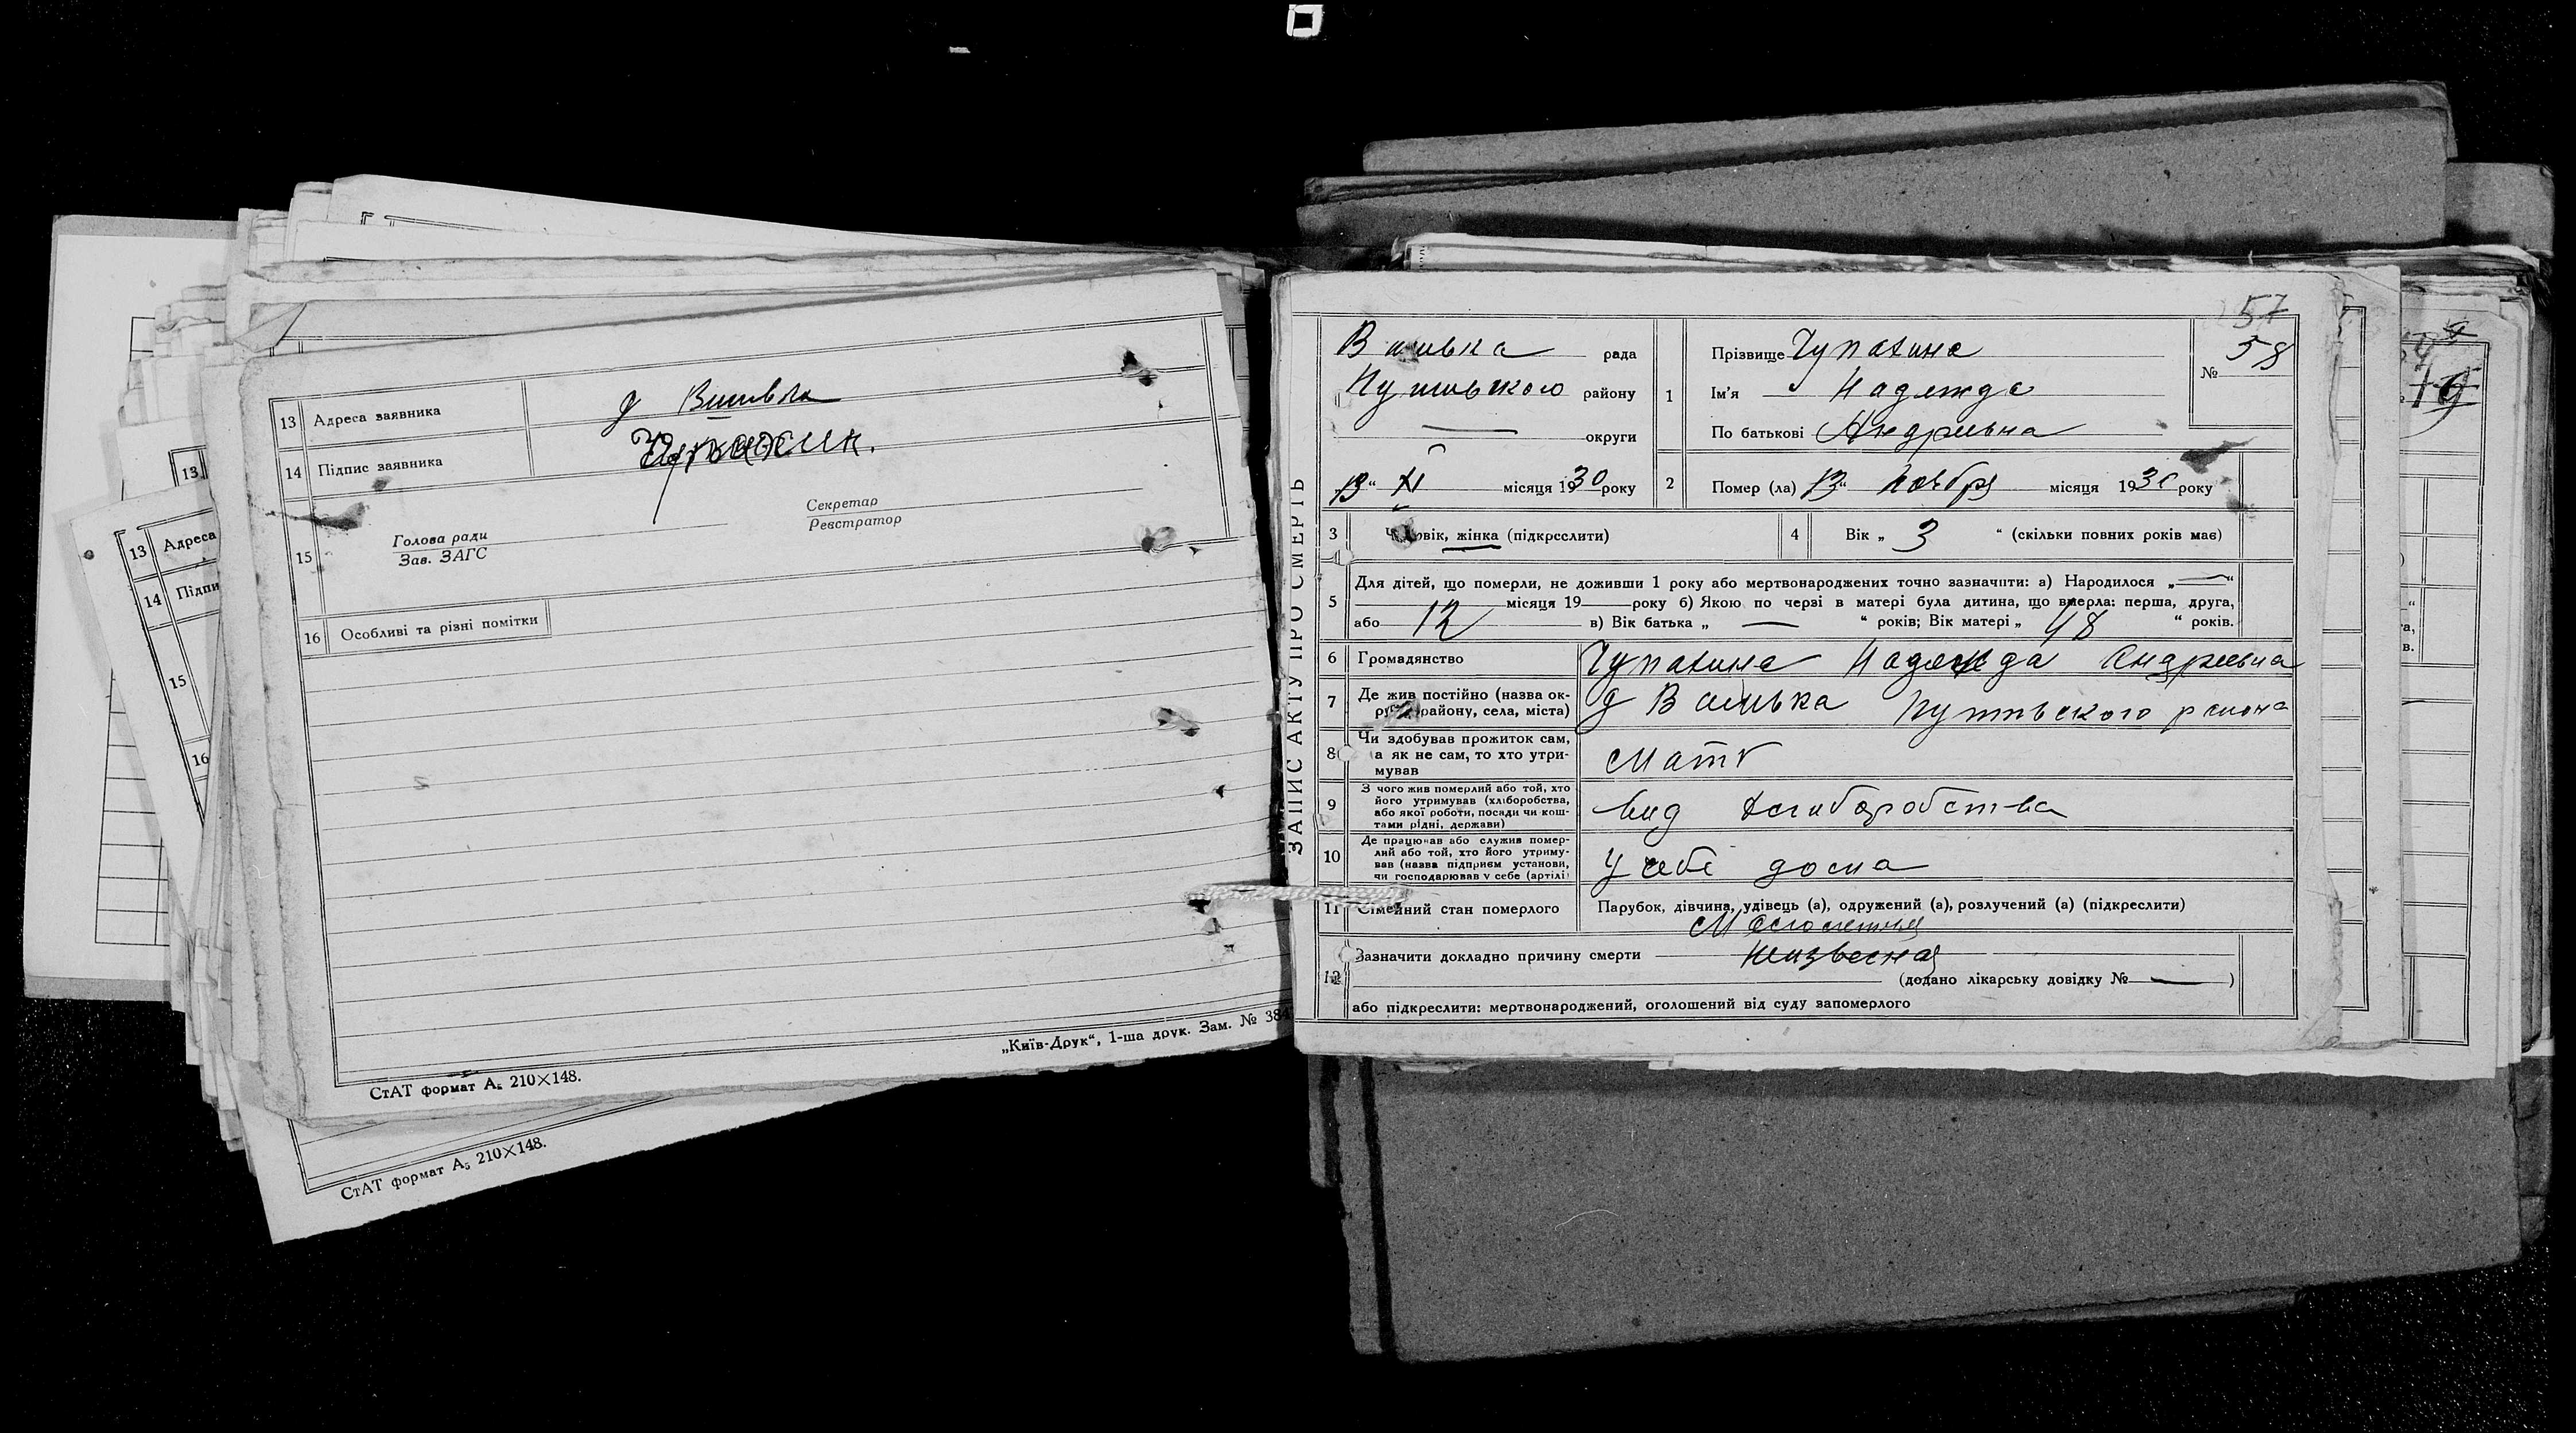 13 Адреса заявника
д Вшивка
14 Підпис заявника
Чупахин.
Секретар
Реєстратор
15 Голова ради
Зав. ЗАГС
16 Особливі та різні помітки
„Київ-Друк“, 1-ша друк. Зам. № 384
СтАТ формат А₅ 210×148.
13
13 Адреса
14 Підпи
15
16
СтАТ формат А₅ 210×148.
ЗАПИС АКТУ ПРО СМЕРТЬ
57
рада
району
округи
13 “ XI місяця 1930 року
1 Прізвище Чупахина
Ім'я Надежда
По батькові Андреевна
№ 58
2 Помер (ла) 13 “ Ноября місяця 1930 року
3 Чоловік, жінка (підкреслити)
4 Вік „ 3 “ (скільки повних років має)
5 Для дітей, що померли, не доживши 1 року або мертвонароджених точно зазначити: а) Народилося „ — “
місяця 19 року б) Якою по черзі в матері була дитина, що вмерла: перша, друга,
або 12 в) Вік батька „ — “ років; Вік матері „ 48 “ років.
6 Громадянство Чупахина Надежда Андреевна
7 Де жив постійно (назва ок-
руги, району, села, міста)
д Путивьского района
8 Чи здобував прожиток сам,
а як не сам, то хто утри-
мував
Мати
9 З чого жив померлий або той, хто
його утримував (хліборобства,
або якої роботи, посади чи кош-
тами рідні, держави)
вид хлиборобства
10 Де працював або служив помер-
лий або той, хто його утриму-
вав (назва підприєм установи,
чи господарював у себе (артілі)
У себе дома
11 Сімейний стан померлого
Парубок, дівчина, удівець (а), одружений (а), розлучений (а) (підкреслити)
Малолетняя
12 Зазначити докладно причину смерти
Неизвесная
(додано лікарську довідку № — )
або підкреслити: мертвонароджений, оголошений від суду запомерлого